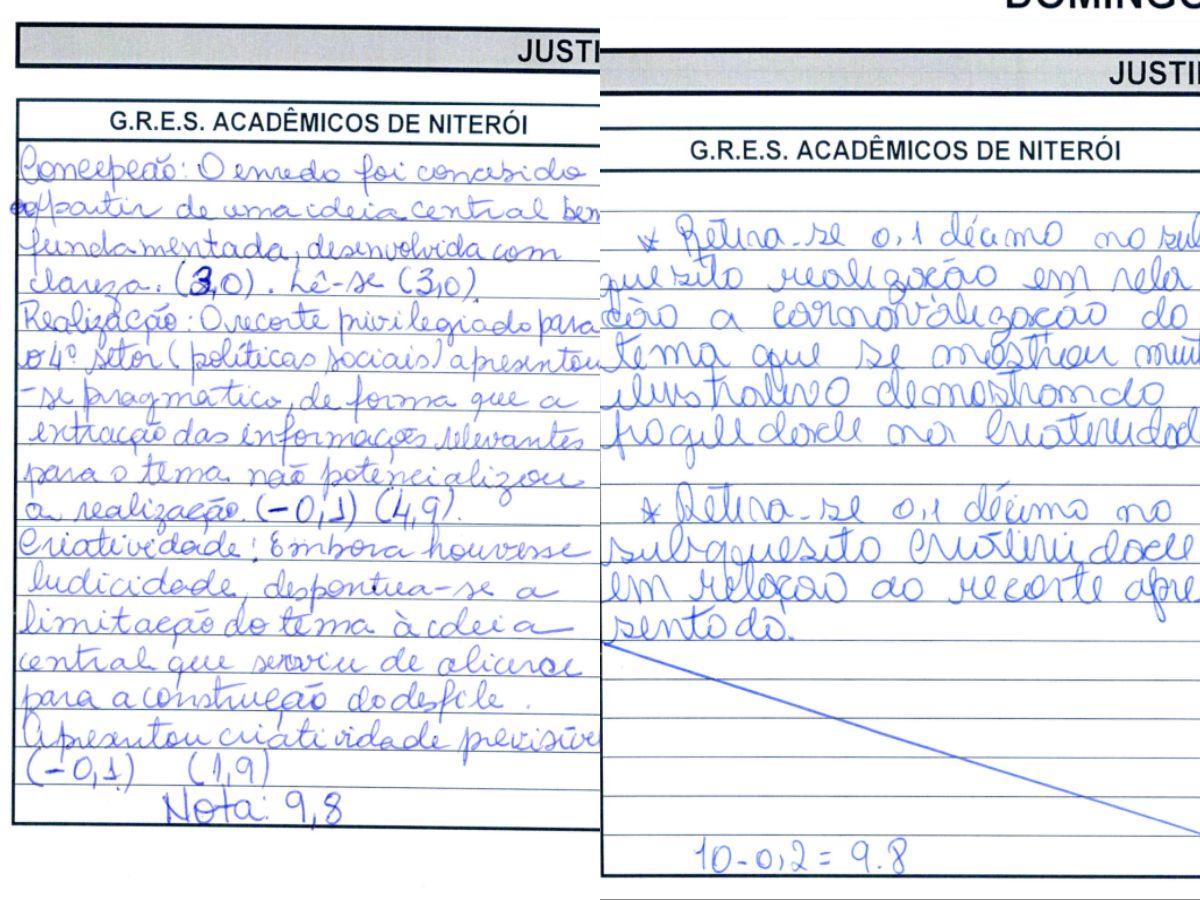 JUSTI
G.R.E.S. ACADÊMICOS DE NITERÓI
Concepção: O enredo foi concebido
a partir de uma ideia central bem
fundamentada, desenvolvida com
clareza. (3,0). Lê-se (3,0)
Realização: O recorte privilegiado para
o 4º setor (políticas sociais) apresentou
-se pragmático, de forma que a
extracção das informações relevantes
para o tema não potencializou
a realização. (-0,1) (4,9).
Criatividade: Embora houvesse
ludicidade, despontua-se a
limitação do tema à ideia
central que serviu de alicerce
para a construção do desfile.
Apresentou criatividade previsíve
(-0,1) (1,9)
Nota: 9,8
DOMINGO
JUSTI
G.R.E.S. ACADÊMICOS DE NITERÓI
* Retira-se 0,1 décimo no sub
quesito realização em rela
ção a carnavalização do
tema que se mostrou muit
ilustrativo demostrando
fragilidade na criatividad
* Retira-se 0,1 décimo no
subquesito criatividade
em relação ao recorte apre
sentado.
10-0,2 = 9.8